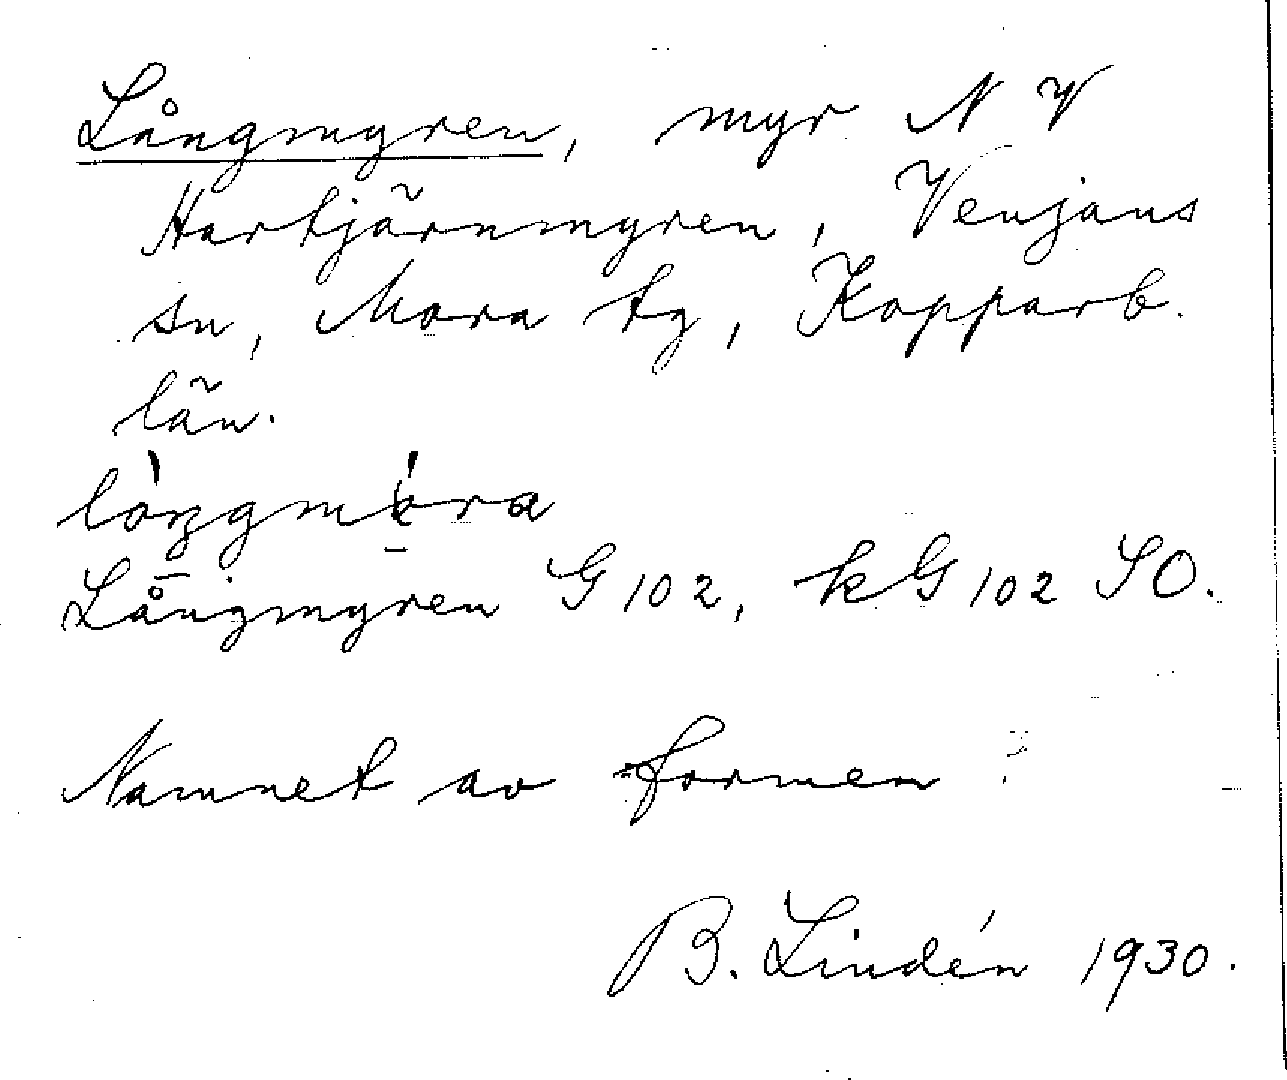 Långmyren, myr N V
Hartjärnmyren, Venjans
sn, Mora tg, Kopparb.
län.
Långmyren G 102, kG 102 SO.
Namnet av formen
B. Lindén 1930.